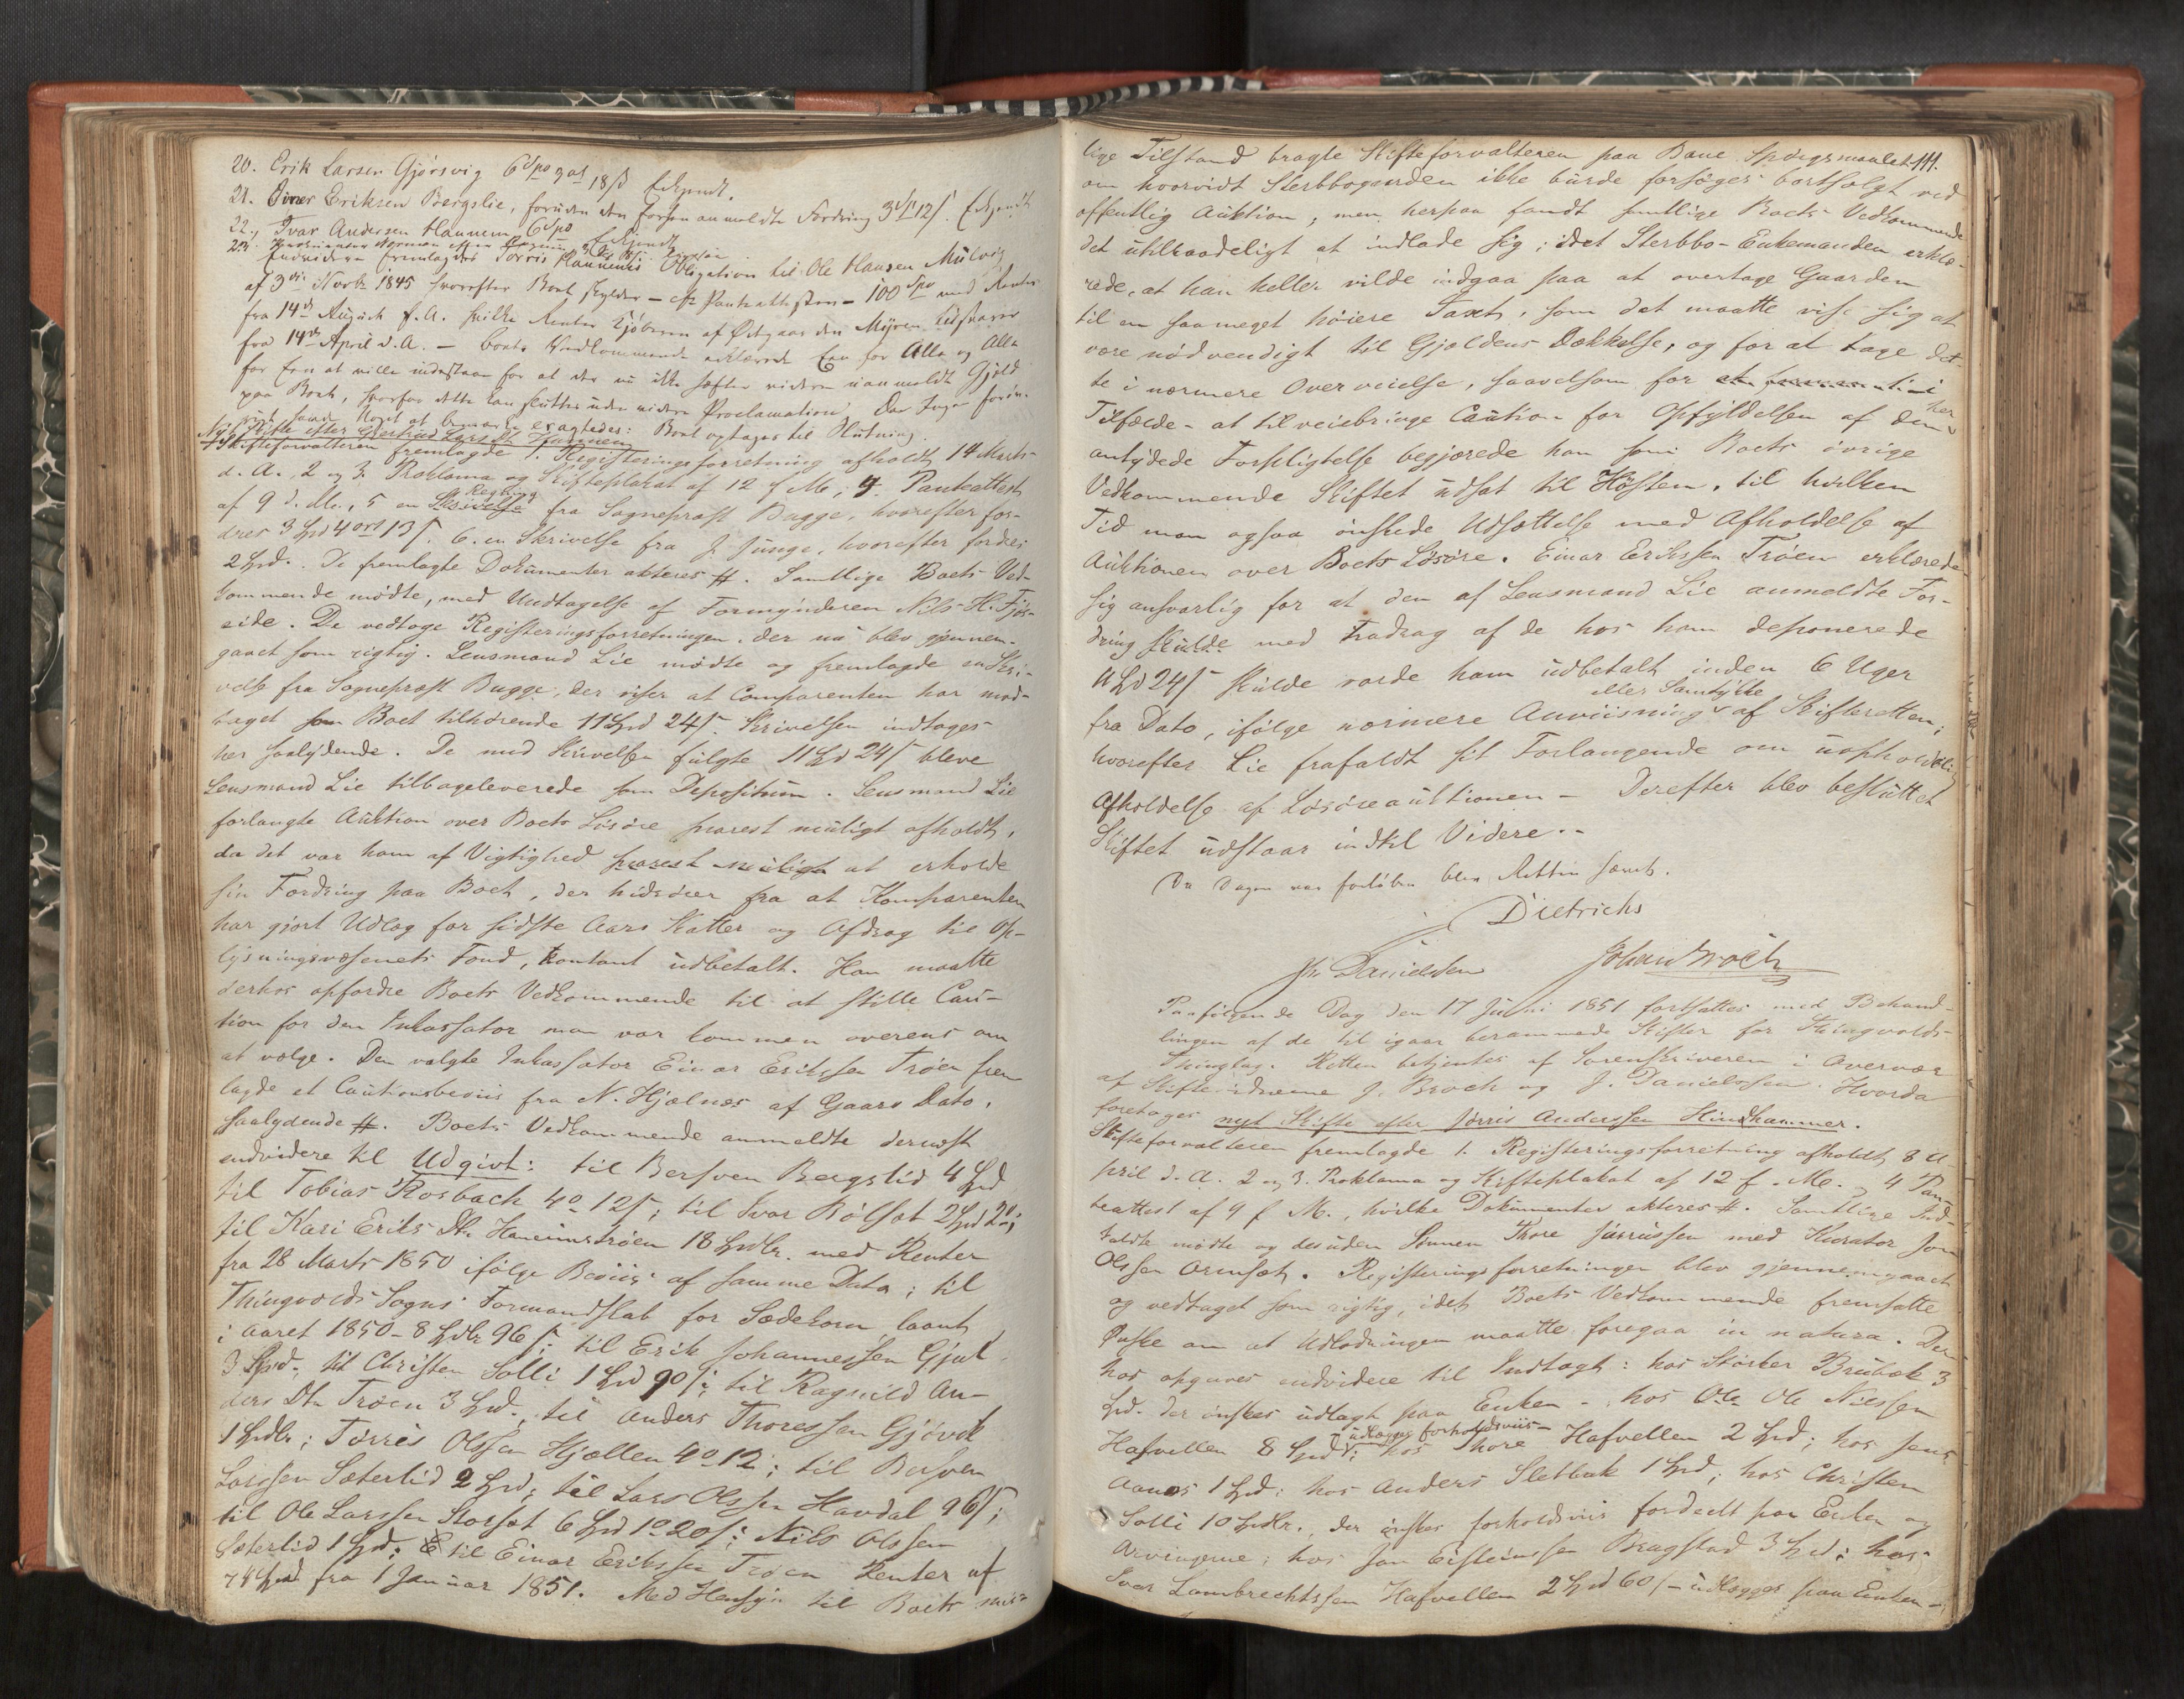 20. Erik Larsen Gjørsvig 6 Spd 18 ß Erkjendt.
21. Einer Eriksen Bergslie, foruden den forhen anmeldte Fordring 3 12 ß. Erkjendt
22., Ivar Andersen Hannem 6 Spd Erkjendt
23.
Endvidere fremlagdes Torris Hannems Obligation til Ole Hansen Mulvig
af 3die Novbr 1845 hvorefter Boet skylder – 100 Spd med Renter
fra 14de August f. A. hvilke Renter Kjøberen af Myren udstarer
fra 14de April d. A. – Boets Vedkommende erklærede Een for Alle og Alle
for Een at ville indestaae for at der nu ikke hæfter videre uanmeldt Gjeld
paa Boet, hvorfor dette kan sluttes uden videre Proclamation. Da Ingen forøv-
rigt havde Noget at bemærke eragtedes: Boet optages til Slutning.
Nyt Skifte efter Gjertrud Lars Dtr
Skifteforvalteren fremlagde 1. Registeringsforretning afholdt 14 Marts
d. A., 2 og 3. Proklama og Skifteplakat af 12 f. M.; 4. Panteattest
af 9 d. M., 5 en Regning fra Sognepræst Bugge, hvorefter for-
dres 3 Spd 4 ort 13 ß. 6. en Skrivelse fra J. Junge, hvorefter fordres
2 Spd. De fremlagte Dokumenter akteres #. Samtlige Boets Ved-
kommende mødte, med Undtagelse af Formynderen Nils H. Fjøs-
eide. De vedtoge Registeringsforretningen, der nu blev gjennem-
gaaet som rigtig. Lensmand Lie mødte og fremlagde en Skri-
velse fra Sognepræst Bugge, der viser at Comparenten har mod-
taget som Boet tilhørende 11 Spd 24 ß. Skrivelsen indtages
her saalydende. De med Skrivelsen fulgte 11 Spd 24 ß bleve
Lensmand Lie tilbageleverede som Depositum. Lensmand Lie
forlangte Auktion over Boets Løsøre snarest muligt afholdt,
da det var ham af Vigtighed snarest muligt at erholde
sin Fordring paa Boet, der hidrører fra at Komparenten
har gjort Udlæg for sidste Aars Skatter og Afdrag til Op-
lysningsvæsenets Fond, kontant udbetalt. Han maatte
derhos opfordre Boets Vedkommende til at stille Cau-
tion for den Inkassator man var kommen overens om
at vælge. Den valgte Inkassator Einar Erikssen Trøen frem
lagde et Cautionsbeviis fra N. Hjælnes af Gaars Dato,
saalydende #. Boets Vedkommende anmeldte dernæst
endvidere til Udgivt: til Bersven Bergslid 4 Spd
til Tobias Rosbach 4 o 12 ß; til Ivar Bølset 2 Spd 2 o;
til Kari Eriks Dtr Hanemstrøen 18 Spdlr. med Renter
fra 28 Marts 1850 ifølge Beviis af samme Dato; til
Thingvolds Sogns Formandskab for Sædekorn laant
i Aaret 1850 – 8 Spdlr 96 ß; til Erik Johannessen Gjul
3 Spd. til Christen Solli 1 Spd 90 ß; til Ragnild An-
ders Dtr Trøen 3 Spd., til Anders Thoressen Gjøvik
1 Spdlr.; Tørres Olssen Hjællen 4 o 12; til Bersven
Larssen Sæterlid 2 Spd; til Lars Olssen Havdal 96 ß;
til Ole Larssen Storset 6 Spd 1 o 20 ß; Nils Olssen
Sæterlid 1 Spd; til Einar Erikssen Trøen Renter af
74 Spd fra 1 Januar 1851. Med Hensyn til Boets mis-
111.
lige Tilstand bragte Skifteforvalteren paa Bane Spørgsmaalet
om hvorvidt Sterbbogaarden ikke burde forsøges bortsolgt ved
offentlig Auktion; men herpaa fandt samtlige Boets Vedkommende
det utilraadeligt at indlade sig; idet Sterbbo-Enkemanden erklæ-
rede, at han heller vilde indgaa paa at overtage Gaarden
til en saa meget høiere Taxt, som det maatte vise sig at
være nødvendigt til Gjældens Dækkelse, og for at tage det-
te i nærmere Overveielse, saavelsom for i her
Tilfælde – at tilveiebringe Caution for Opfyldelsen af den
antydede Forpligtelse begjærede han som Boets øvrige
Vedkommende Skiftet udsat til Høsten, til hvilken
Tid man ogsaa ønskede Udsættelse med Afholdelse af
Auktionen over Boets Løsøre. Einar Erikssen Trøen erklærede
sig ansvarlig for at den af Lensmand Lie anmeldte For-
dring skulde med Fradrag af de hos ham deponerede
11 Spd 24 ß skulde vorde ham udbetalt inden 6 Uger
fra Dato, ifølge nærmere Anviisning eller Samtykke af Skifteretten;
hvorefter Lie frafaldt sit Forlangende om uopholdelig
Afholdelse af Løsøreauktionen – Derefter blev besluttet
Skiftet udstaar indtil Videre. –
Da Dagen var forløben blev Retten hævet.
Dietrichs
Jh Danielsen Johan Broch
Paafølgende Dag den 17 Juni 1851 fortsattes med Behand-
lingen af de til igaar berammede Skifter for Thingvolds
Thinglag. Retten betjentes af Sorenskriveren i Overvær
af Skiftevidnerne J. Broch og J. Danielssen. Hvorda
foretages nyt Skifte efter Jørris Anderssen Hindhammer.
Skifteforvalteren fremlagde 1. Registeringsforretning afholdt 8 A-
pril d. A. 2 og 3. Proklama og Skifteplakat af 12 f. M. og 4 Pan-
teattest af 9 f. M., hvilke Dokumenter akteres #. Samtlige Ind-
kaldte mødte og desuden Sønnen Thore Jørrissen med Kurator Jon
Olssen Ormset. Registeringsforretningen blev gjennemgaaet
og vedtaget som rigtig, idet Boets Vedkommende fremsatte
Ønske om at Udlodningen maatte foregaa in natura. Der-
hos opgaves endvidere til Indtægt: hos Størker Brubæk 3
Spd. der ønskes udlagt paa Enken –; hos Ole Nilssen
Hafvellen 8 Spd udlægges forholdsviis –; hos Thore Hafvellen 2 Spd; hos Jens
Aanes 1 Spd; hos Anders Sletbak 1 Spd; hos Christen
Solli 10 Spdlr., der ønskes forholdsviis fordeelt paa Enken og
Arvingerne; hos Jon Eisteinssen Bragstad 3 Spd; hos
Ivar Lambrechtssen Hafvellen 2 Spd 60 ß – udlægges paa Enken –;